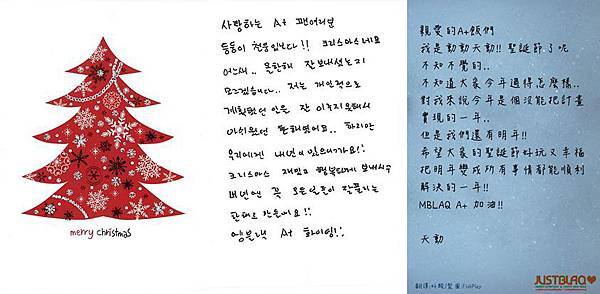 merry christmas
사랑하는 A+ 팬여러분
둥둥이 천둥입니다!! 크리스마스네요
어느새.. 올한해 잘보내셨는지
모르겠습니다.. 저는 개인적으로
계획했던 일을 잘 이루지못해서
아쉬웠던 한해였어요.. 하지만
우리에겐 내년이있으니까요!!
크리스마스 재밌고 행복하게 보내시구
내년엔 꼭 모든일들이 잘풀리는
한해으
엠블랙 A+ 화이팅!!
親愛的A+飯們
我是動動天動!! 聖誕節了呢
不知不覺的..
不知道大家今年過得怎麼樣..
對我來說今年是個沒能把計畫
實現的一年..
但是我們還有明年!!
希望大家的聖誕節好玩又幸福
把明年變成所有事情都能順利
解決的一年!!
MBLAQ A+ 加油!!
天動
JUSTBLAQ